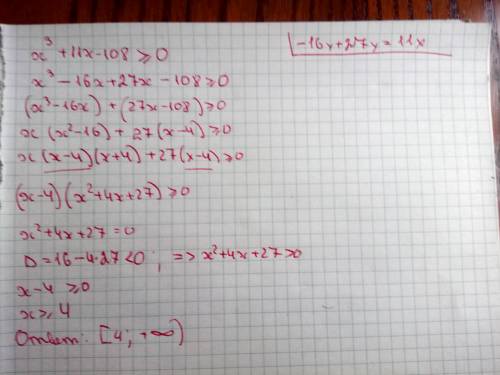 x³ + 11x - 108 ≥ 0
-16x + 27x = 11x
x³ - 16x + 27x - 108 ≥ 0
(x³ - 16x) + (27x - 108) ≥ 0
x (x² - 16) + 27 (x - 4) ≥ 0
x (x - 4)(x + 4) + 27 (x - 4) ≥ 0
(x - 4)(x² + 4x + 27) ≥ 0
x² + 4x + 27 = 0
D = 16 - 4·27 < 0; => x² + 4x + 27 > 0
x - 4 ≥ 0
x ≥ 4
Ответ: [4; +∞)